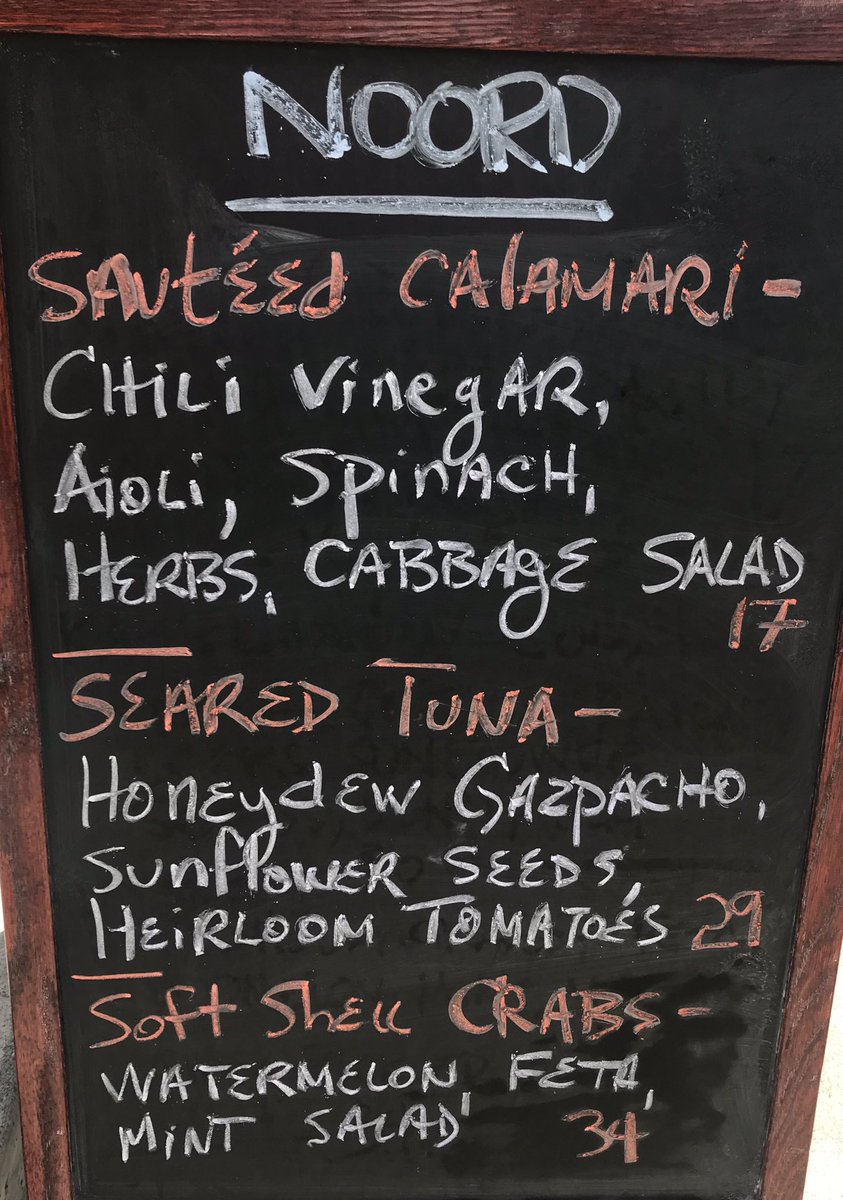 NOORD
SAUTÉED CALAMARI -
CHILI VINEGAR,
AIOLI, SPINACH,
HERBS, CABBAGE SALAD
17
SEARED TUNA -
HONEYDEW GAZPACHO,
SUNFLOWER SEEDS,
HEIRLOOM TOMATOES 29
SOFT SHELL CRABS -
WATERMELON, FETA,
MINT SALAD 34